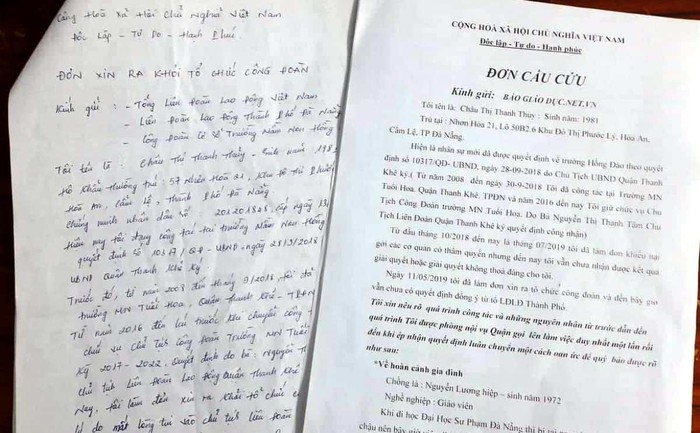 Cộng Hoà Xã Hội Chủ Nghĩa Việt Nam
Độc Lập - Tự Do - Hạnh Phúc.
ĐƠN XIN RA KHỎI TỔ CHỨC CÔNG ĐOÀN
Kính gửi : - Tổng Liên Đoàn Lao Động Việt Nam
- Liên Đoàn Lao Động Thành Phố Đà Nẵng
- Công Đoàn Cơ Sở Trường Mầm Non Hồng
Tôi tên là : Châu Thị Thanh Thủy - Sinh năm 198
Hộ khẩu thường trú : 57 Nhơn Hoà 21, Khu Đô Thị Phước
Hoà An, Cẩm Lệ, Thành Phố Đà Nẵng
Chứng minh nhân dân số cấp ngày
Hiện nay tôi đang công tác tại trường Mầm Non Hồng
quyết định số QĐ - UBND, ngày 28/9/2018
UBND Quận Thanh Khê ký
Trước đó, từ năm 2008 đến tháng 9/2018 tôi
trường MN Tuổi Hoa, Quận Thanh Khê - TPĐN
Từ năm 2016 đến lúc trước khi chuyển công
chức vụ Chủ Tịch Công Đoàn Trường MN Tuổi
Kỳ 2017 - 2022, quyết định do bà : Nguyễn T
chủ tịch Liên Đoàn Lao Động Quận Thanh Khê
Nay, tôi làm đơn xin ra khỏi tổ chức
Lý do mất lòng tin vào chủ tịch Liên Đoàn
CỘNG HOÀ XÃ HỘI CHỦ NGHĨA VIỆT NAM
Độc lập - Tự do - Hạnh phúc
ĐƠN CẦU CỨU
Kính gửi: BÁO GIÁO DỤC.NET.VN
Tôi tên là: Châu Thị Thanh Thủy : Sinh năm: 1981
Trú tại : Nhơn Hòa 21, Lô 50B2 6 Khu Đô Thị Phước Lý, Hòa An,
Cẩm Lệ, TP Đà Nẵng.
Hiện là nhân sự mới đã được quyết định về trường Hồng Đào theo quyết
định số 10317/QĐ- UBND, ngày 28-09-2018 do Chủ Tịch UBND Quận Thanh
Khê ký.( Từ năm 2008 đến ngày 30-9-2018 Tôi đã công tác tại Trường MN
Tuổi Hoa. Quận Thanh Khê. TPĐN và năm 2016 đến nay Tôi giữ chức vụ Chủ
Tịch Công Đoàn trường MN Tuổi Hoa. Do Bà Nguyễn Thị Thanh Tâm Chủ
Tịch Liên Đoàn Quận Thanh Khê ký quyết định công nhận)
Từ đầu tháng 10/2018 đến nay là tháng 07/2019 tôi đã làm đơn khiếu nại
gởi các cơ quan có thẩm quyền nhưng đến nay tôi vẫn chưa nhận được kết quả
giải quyết hoặc giải quyết không thoả đáng cho tôi.
Ngày 11/05/2019 tôi đã làm đơn xin ra tổ chức công đoàn và đến bây giờ
vẫn chưa có quyết định đồng ý từ tổ LĐLĐ Thành Phố.
Tôi xin nêu rõ quá trình công tác và những nguyên nhân từ trước dẫn đến
quá trình Tôi được phòng nội vụ Quận gọi lên làm việc duy nhất một lần rồi
đến khi ép nhận quyết định luân chuyển một cách oan ức để quý báo được rõ
như sau:
*Về hoàn cảnh gia đình
Chồng là : Nguyễn Lương hiệp – sinh năm 1972
Nghề nghiệp : Giáo viên
Khi đi học Đại Học Sư Phạm Đà Nẵng thì bị tai